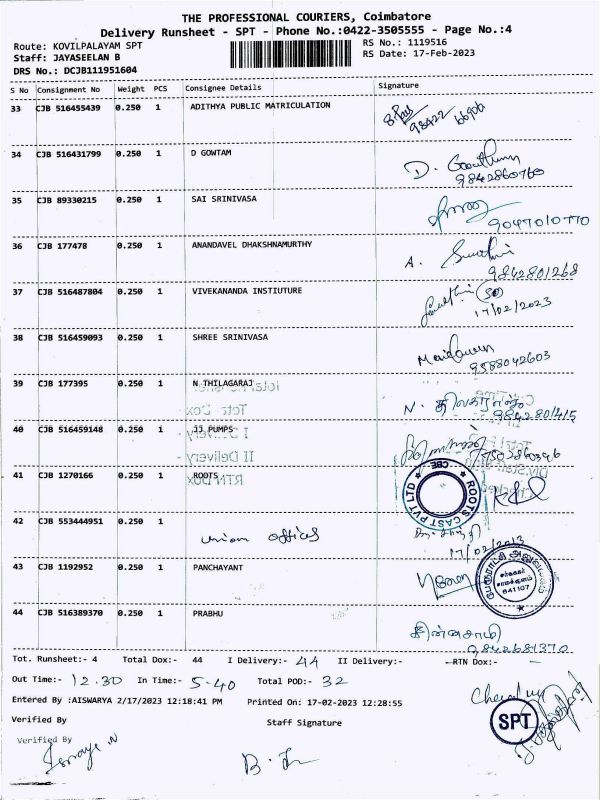 THE PROFESSIONAL COURIERS, Coimbatore
Delivery Runsheet - SPT - Phone No.:0422-3505555 - Page No.:4
Route: KOVILPALAYAM SPT RS No.: 1119516
Staff: JAYASEELAN B RS Date: 17-Feb-2023
DRS No.: DCJB111951604
S No Consignment No Weight PCS Consignee Details Signature
33 CJB 516455439 0.250 1 ADITHYA PUBLIC MATRICULATION
98422
34 CJB 516431799 0.250 1 D GOWTAM D. Gowtham
9842860760
35 CJB 89330215 0.250 1 SAI SRINIVASA
9047010770
36 CJB 177478 0.250 1 ANANDAVEL DHAKSHNAMURTHY A.
9842801268
37 CJB 516487804 0.250 1 VIVEKANANDA INSTIUTURE
17/02/2023
38 CJB 516459093 0.250 1 SHREE SRINIVASA
9588042603
39 CJB 177395 0.250 1 N THILAGARAJ N. திலகராஜ்
9842801415
40 CJB 516459148 0.250 1 JJ PUMPS
41 CJB 1270166 0.250 1 ROOTS
ROOTS CAST PVT LTD CBE
42 CJB 553444951 0.250 1 union offices
17/02/2023
43 CJB 1192952 0.250 1 PANCHAYANT
641107
44 CJB 516389370 0.250 1 PRABHU
சின்னசாமி
9842681370
Tot. Runsheet:- 4 Total Dox:- 44 I Delivery:- 44 II Delivery:- RTN Dox:- -
Out Time:- 12.30 In Time:- 5-40 Total POD:- 32
Entered By :AISWARYA 2/17/2023 12:18:41 PM Printed On: 17-02-2023 12:28:55
Verified By Staff Signature
SPT
Verified By